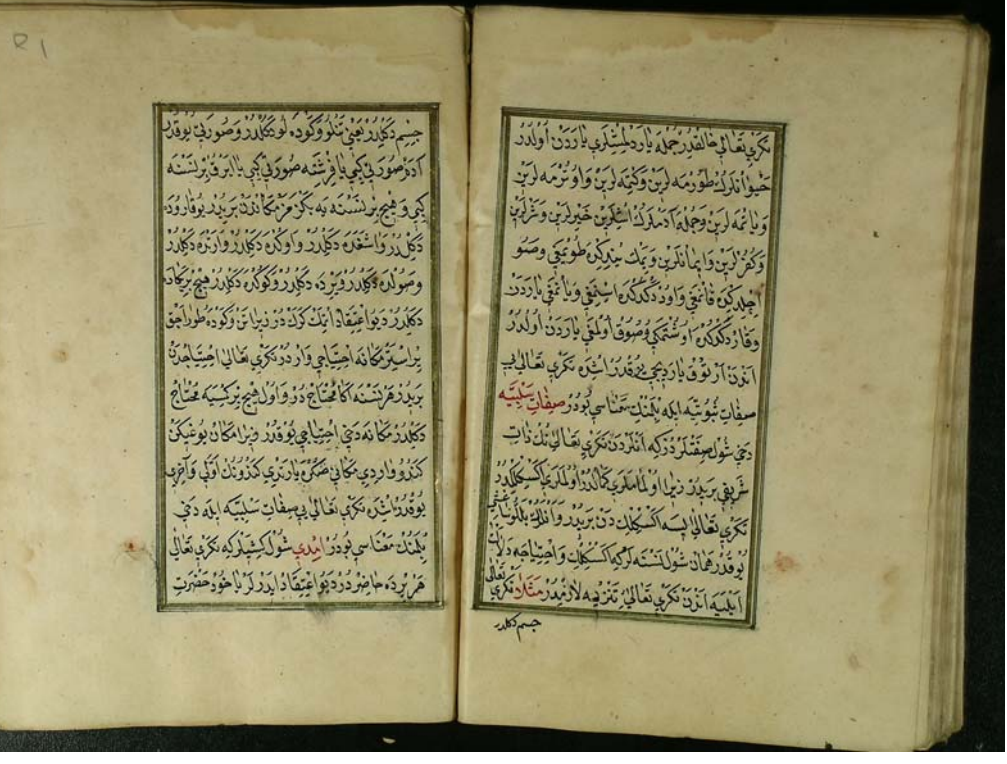 تكري تعالى خالقدر جمله يارادلمشلري ياردن اولدر
حيوانلرك طورمه لرين وكتمه لرين واوترمه لرين
وياتمه لرين وجمله آدملرك اشلرين خيرلرين وشرلرين
وكفرلرين وايمانلرين ويمك يدكده طويمغي وصو
ايجلدكده قانمغي واود دكدكده اسنمغي وياتمغي ياردن
وقار دكدكده اوشتمكي وصوق اولمغي ياردن اولدر
اندن آرتوق ياردیجی يوقدر اشده تكري تعالى يي
صفات ثبوتيه ايله بلمنك معناسي بودر صفات سلبيه
دخي شول صفتلردر كه انلردن تكري تعالى نك ذات
شريفي بريدر زيرا اولمامالري كمالدر اولمالري اكسكلكدر
تكري تعالى ايسه اكسكلك دن بريدر وانلرك بللو
يوقدر همان شول نسنه لر كه اكسكلك واحتياجه دلالت
ايليه اندن تكري تعالى يي تنزيه لازمدر مثلا تكري تعالى
جسم دكلدر
جسم دكلدر يعني تنلو وكوده لو دكلدر وصورتي يوقدر
آدم صورتي كبي يا فرشته صورتي كبي يا ايرق بر نسنه
كبي وهيچ بر نسنه يه بكزمز مكاندن بريدر يوقاروده
دكلدر واشغده دكلدر واوكده دكلدر وارتده دكلدر
وصولده دكلدر ويرده دكلدر وكوكده دكلدر هيچ بر يكاده
دكلدر ديو اعتقاد ايتمك كرك در زيرا تن وكوده طوراجق
ير استر مكانه احتياجي واردر تكري تعالى احتياجدن
بريدر هر نسنه اكا محتاج در واول هيچ بر كسيه محتاج
دكلدر مكانه دخي احتياجي يوقدر زيرا مكان يوغيكن
كندو واردي مكاني صكره ياراتدي كندونك اولي وآخري
يوقدر اشده تكري تعالى يي صفات سلبيه ايله دخي
بلمنك معناسي بودر امدي شول كشيلر كه تكري تعالى
هر يرده حاضردر ديو اعتقاد ايدرلر يا خود حضرت